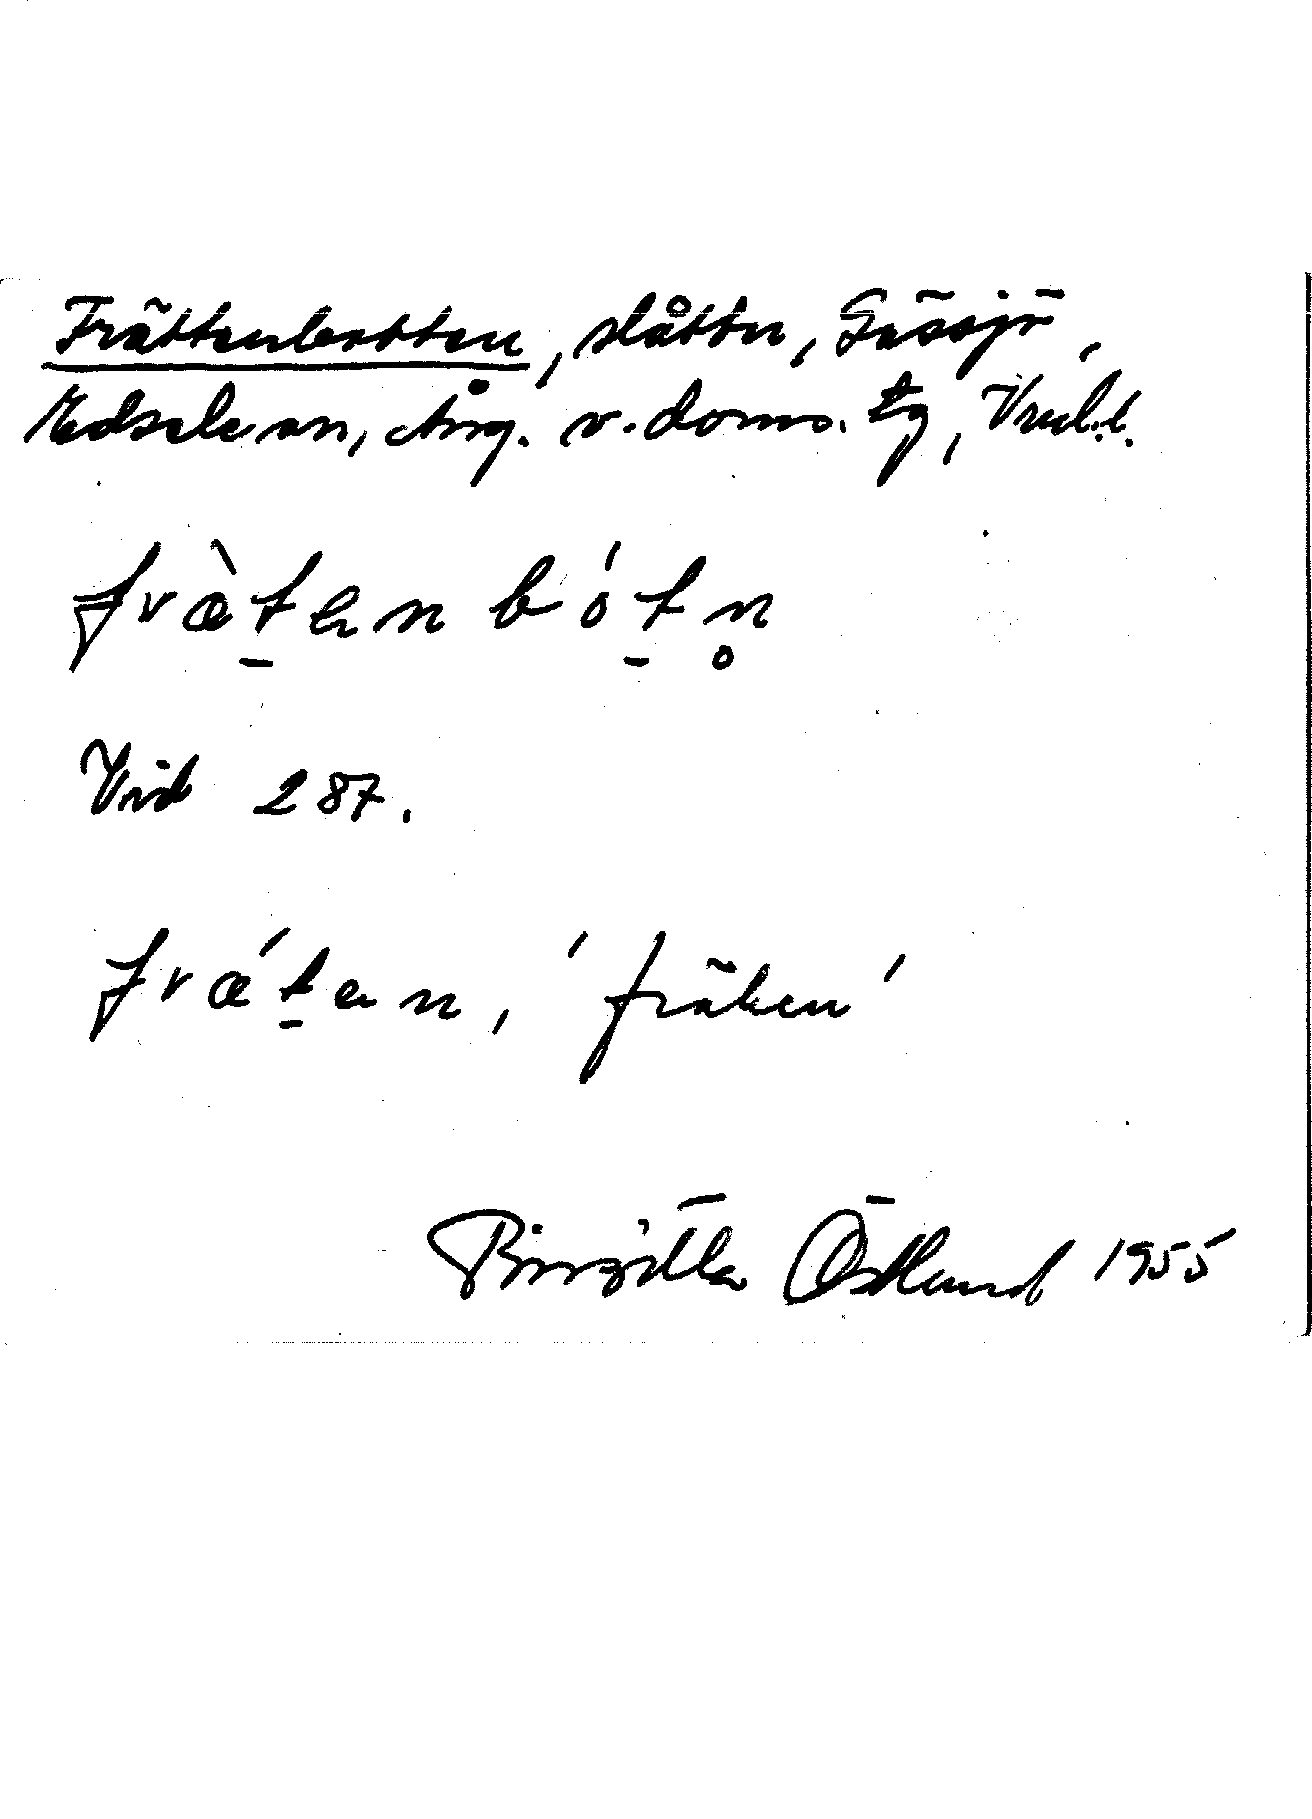 Frättenbotten, slåttn, Gässjö,
Edsele sn, Ång. v. doms. tg, Vnrl.l.
fræ̀t̠enbót̠n̥
Vid 287.
frǽt̠en, 'fräken'
Birgitta Östlund 1955